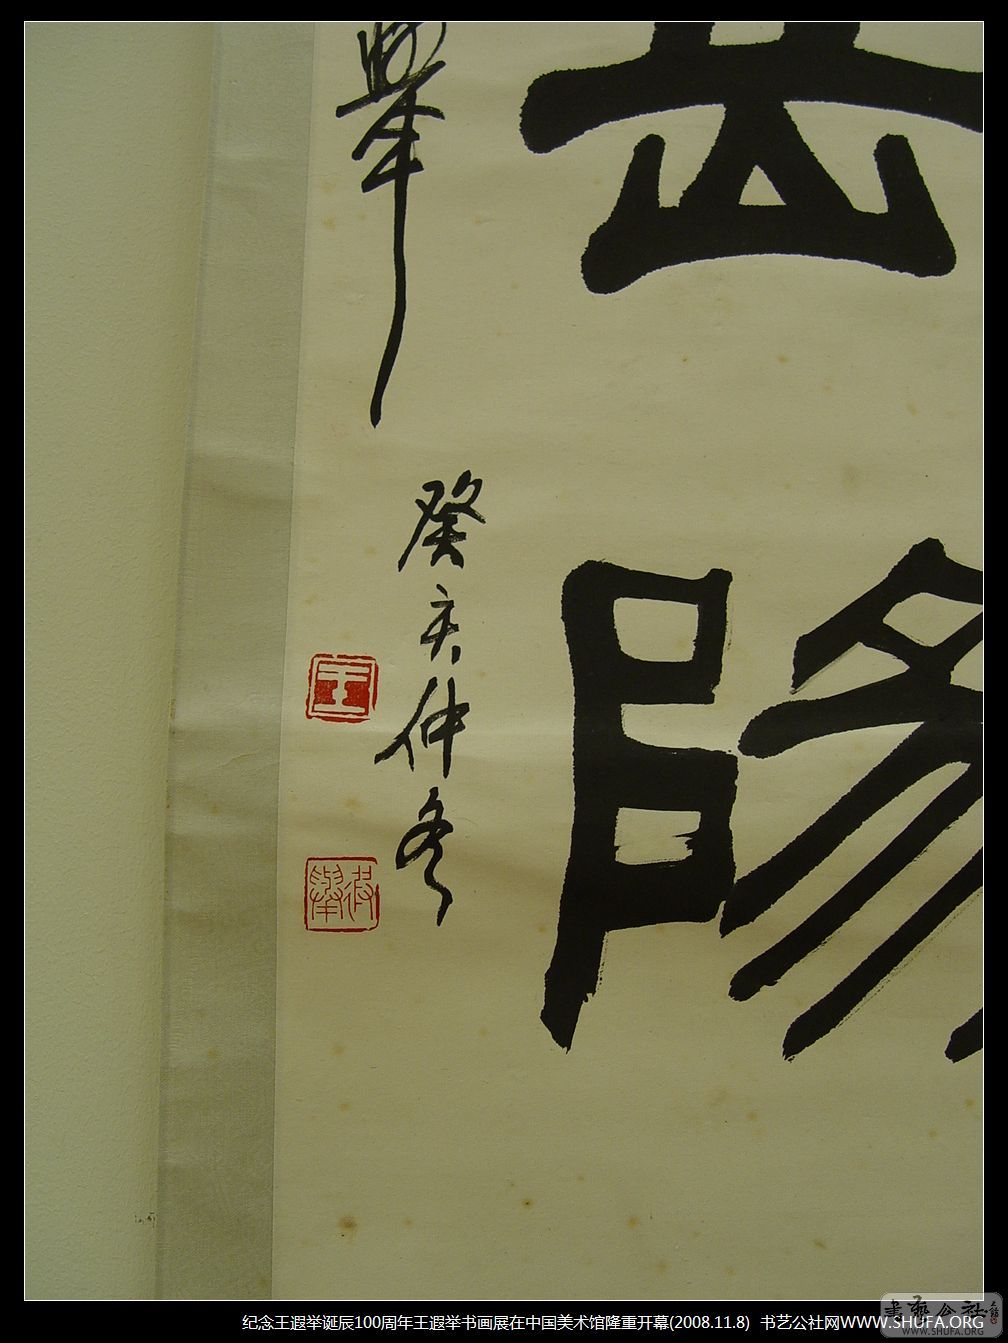 岳陽
舉
癸亥仲冬
王
遐舉
書藝公社
WWW.SHUFA.ORG
纪念王遐举诞辰100周年王遐举书画展在中国美术馆隆重开幕(2008.11.8) 书艺公社网WWW.SHUFA.ORG